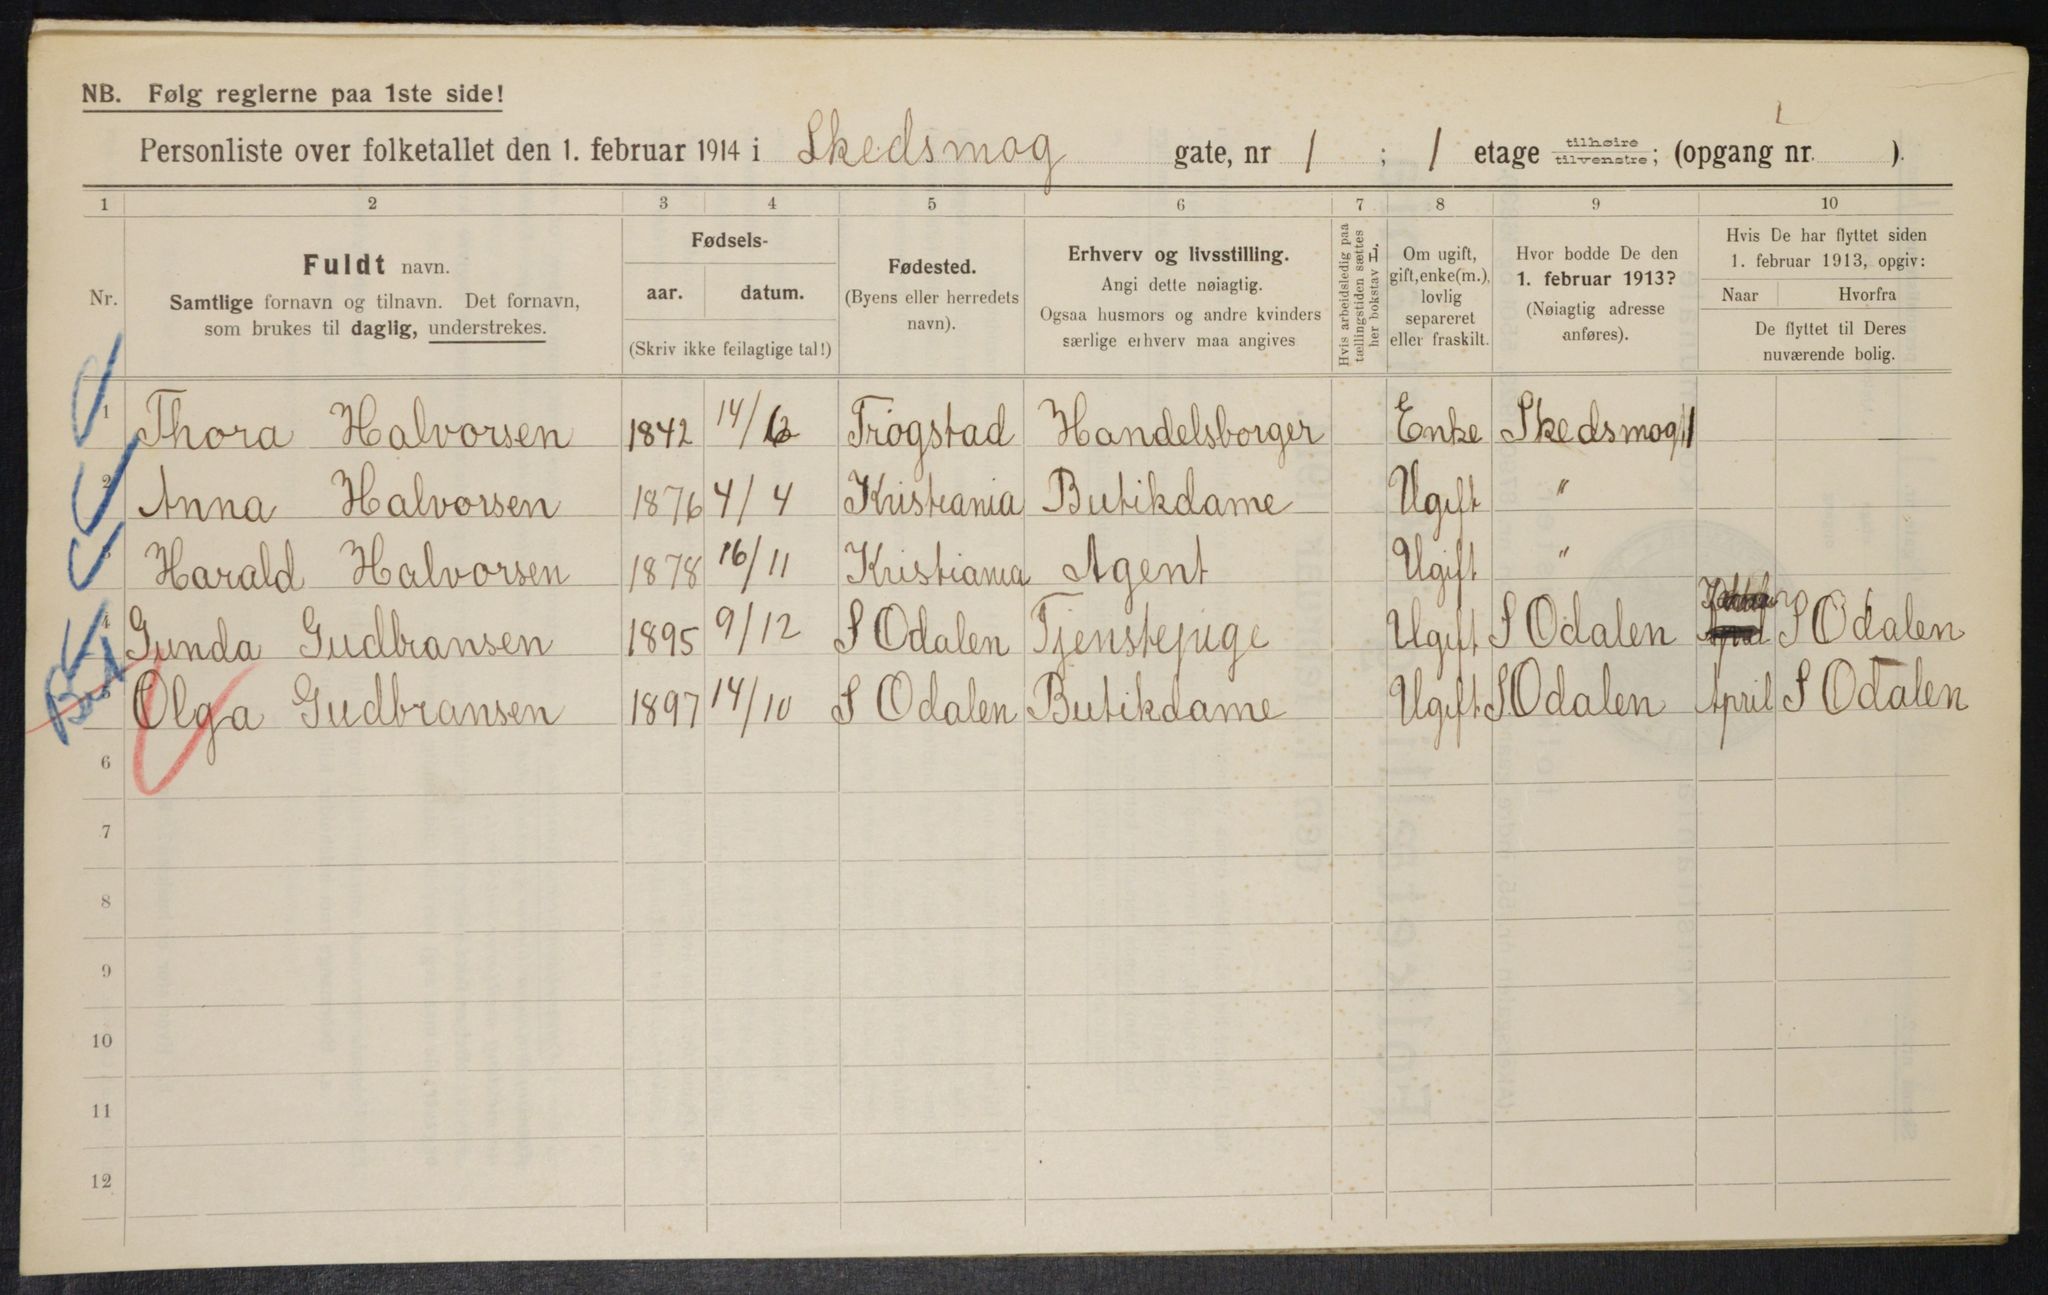 NB. Følg reglerne paa 1ste side!
Personliste over folketallet den 1. februar 1914 i Skedsmog gate, nr 1 ; 1 etage tilhøire tilvenstre; (opgang nr. ).
1 2 3 4 5 6 7 8 9 10
Nr.
Fuldt navn.
Samtlige fornavn og tilnavn. Det fornavn,
som brukes til daglig, understrekes.
Fødsels-
aar. datum.
(Skriv ikke feilagtige tal!)
Fødested.
(Byens eller herredets
navn).
Erhverv og livsstilling.
Angi dette nøiagtig.
Ogsaa husmors og andre kvinders
særlige erhverv maa angives
Hvis arbeidsledig paa
tællingstiden sættes
her bokstav L.
Om ugift,
gift, enke(m.),
lovlig
separeret
eller fraskilt.
Hvor bodde De den
1. februar 1913?
(Nøiagtig adresse
anføres).
Hvis De har flyttet siden
1. februar 1913, opgiv:
Naar Hvorfra
De flyttet til Deres
nuværende bolig.
1 Thora Halvorsen 1842 14/ Trøgstad Handelsborger Enke Skedsmog 1
2 Anna Halvorsen 1876 4/4 Kristiania Butikdame Ugift "
3 Harald Halvorsen 1878 16/11 Kristiania Agent Ugift "
4 Gunda Gudbransen 1895 9/12 S Odalen Tjenstepige Ugift S Odalen S Odalen
5 Olga Gudbransen 1897 14/10 S Odalen Butikdame Ugift S Odalen April S Odalen
6
7
8
9
10
11
12